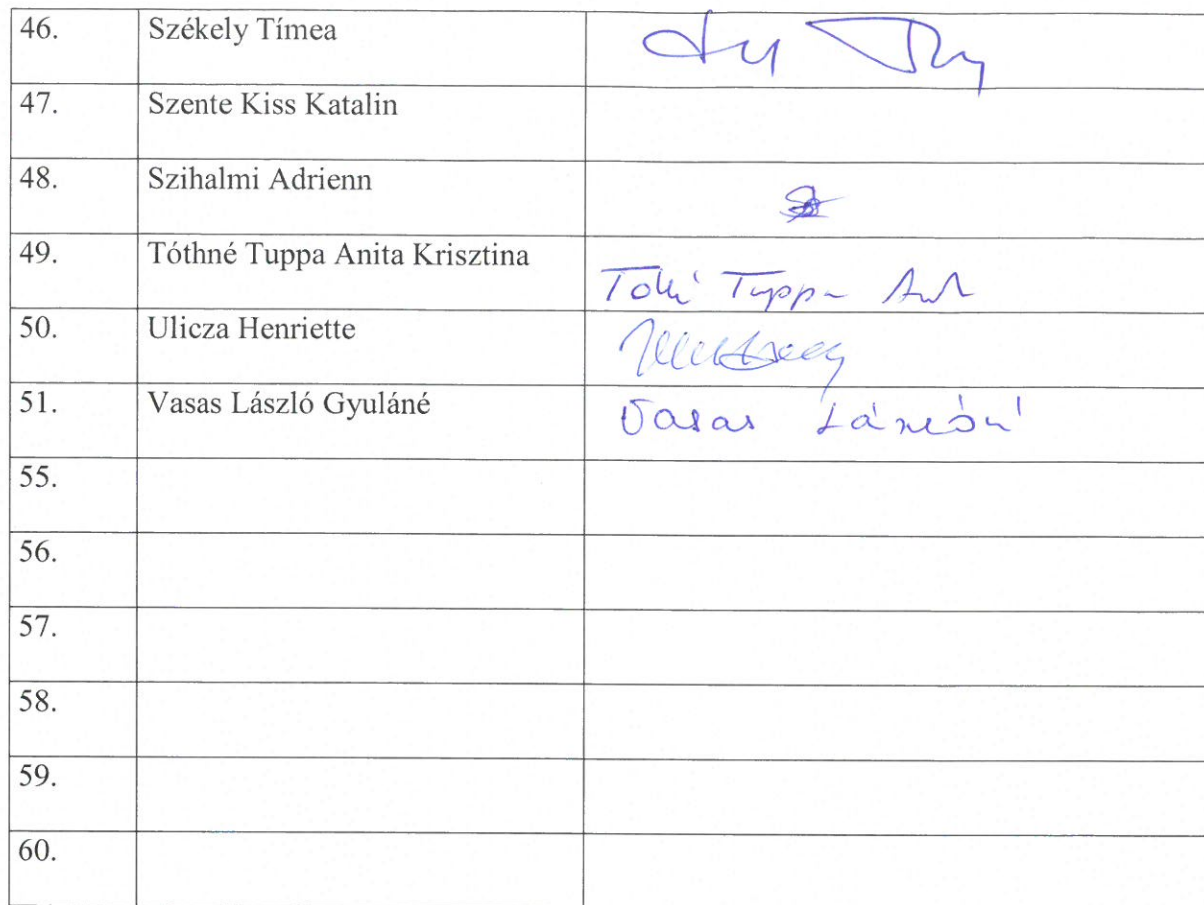 46. Székely Tímea
47. Szente Kiss Katalin
48. Szihalmi Adrienn
49. Tóthné Tuppa Anita Krisztina
Tuppa
50. Ulicza Henriette
51. Vasas László Gyuláné
Vasas Lászlóné
55.
56.
57.
58.
59.
60.